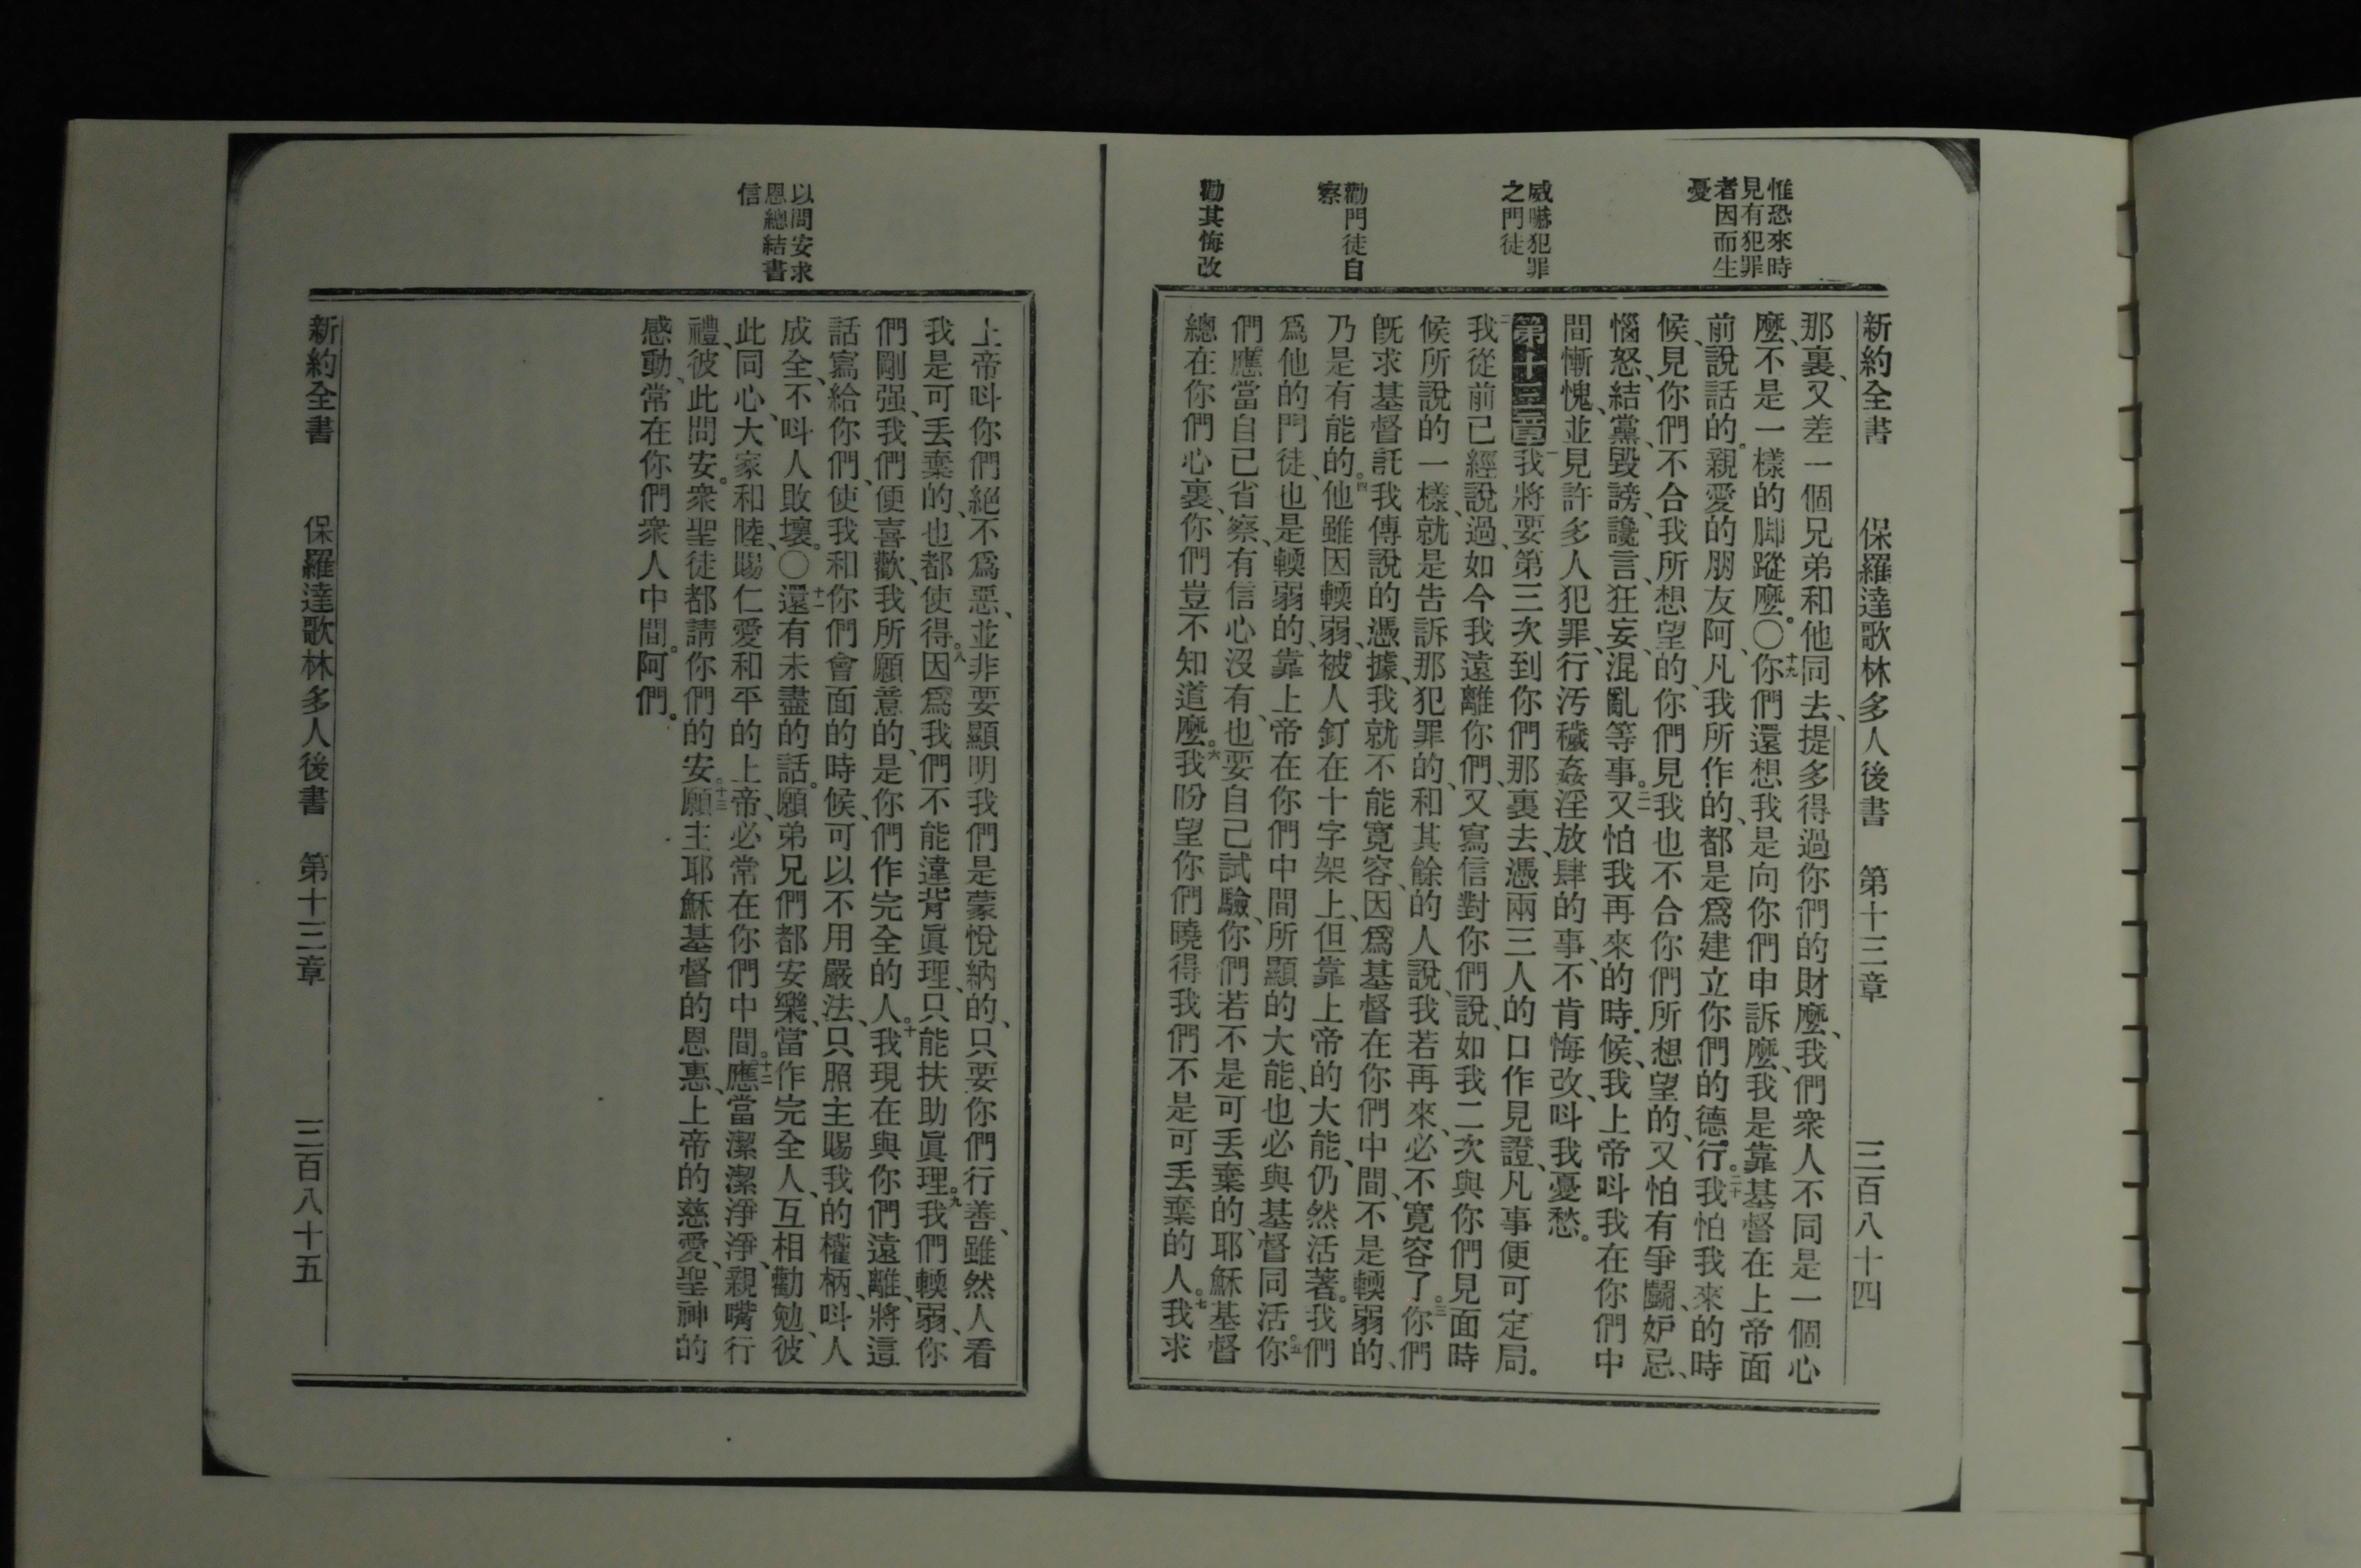 惟恐來時
見有犯罪
者因而生
憂
威嚇犯罪
之門徒
勸門徒自
察
勸其悔改
新約全書 保羅達歌林多人後書 第十三章 三百八十四
那裏、又差一個兄弟和他同去、提多得過你們的財麼、我們衆人不同是一個心
麼、不是一樣的脚蹤麼。〇十九你們還想我是向你們申訴麼、我是靠基督在上帝面
前說話的。親愛的朋友阿、凡我所作的、都是爲建立你們的德行。二十我怕我來的時
候、見你們不合我所想望的、你們見我也不合你們所想望的、又怕有爭鬬、妒忌、
惱怒、結黨、毀謗、讒言、狂妄、混亂等事。二一又怕我再來的時候、我上帝呌我在你們中
間慚愧、並見許多人犯罪、行汚穢姦淫放肆的事、不肯悔改、呌我憂愁。
第十三章一我將要第三次到你們那裏去、憑兩三人的口作見證、凡事便可定局。
二我從前已經說過、如今我遠離你們、又寫信對你們說、如我二次與你們見面時
候所說的一樣、就是告訴那犯罪的、和其餘的人說、我若再來、必不寬容了。三你們
旣求基督託我傳說的憑據、我就不能寬容、因爲基督在你們中間、不是輭弱的、
乃是有能的。四他雖因輭弱、被人釘在十字架上、但靠上帝的大能、仍然活著。我們
爲他的門徒、也是輭弱的、靠上帝在你們中間所顯的大能、也必與基督同活。五你
們應當自己省察、有信心沒有、也要自己試驗、你們若不是可丟棄的、耶穌基督
總在你們心裏、你們豈不知道麼。六我盼望你們曉得我們不是可丟棄的人。七我求
以問安求
恩總結書
信
上帝呌你們絕不爲惡、並非要顯明我們是蒙悅納的、只要你們行善、雖然人看
我是可丟棄的、也都使得。八因爲我們不能違背眞理、只能扶助眞理。九我們輭弱、你
們剛强、我們便喜歡、我所願意的、是你們作完全的人。十我現在與你們遠離、將這
話寫給你們、使我和你們會面的時候、可以不用嚴法、只照主賜我的權柄、呌人
成全、不呌人敗壞。〇十一還有未盡的話。願弟兄們都安樂、當作完全人、互相勸勉、彼
此同心、大家和睦、賜仁愛和平的上帝、必常在你們中間。十二應當潔潔淨淨、親嘴行
禮、彼此問安。衆聖徒都請你們的安。十三願主耶穌基督的恩惠、上帝的慈愛、聖神的
感動、常在你們衆人中間。阿們。
新約全書 保羅達歌林多人後書 第十三章 三百八十五